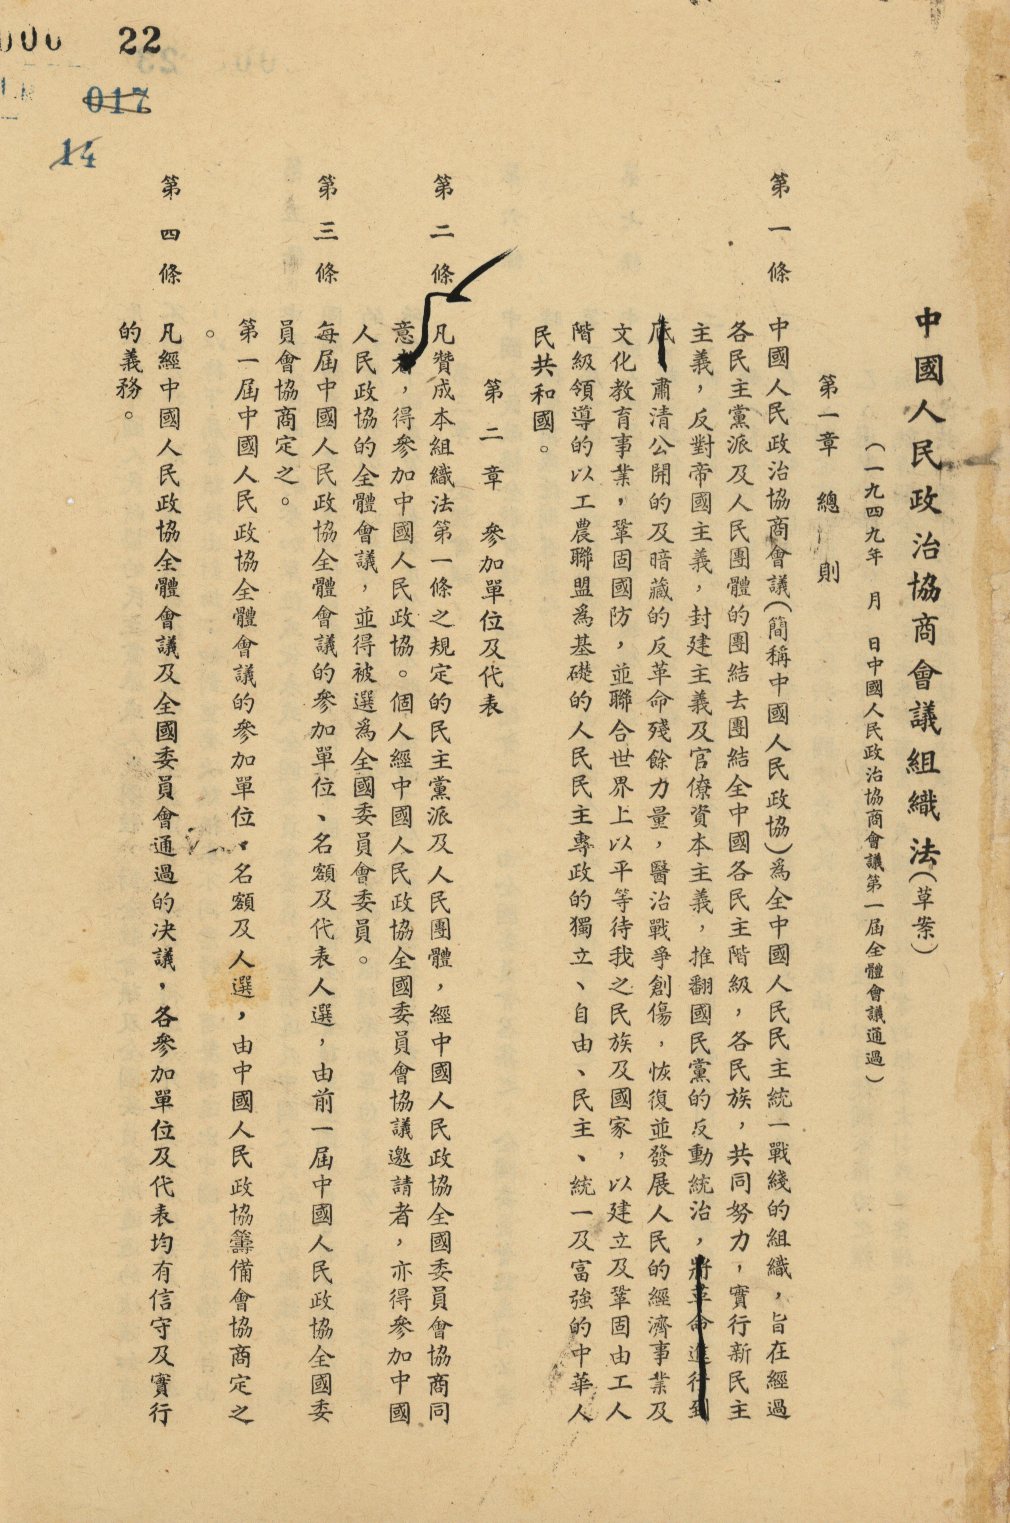 22
017
中國人民政治協商會議組織法(草案)
(一九四九年 月 日中國人民政治協商會議第一屆全體會議通過)
第一章 總則
第一條 中國人民政治協商會議(簡稱中國人民政協)為全中國人民民主統一戰綫的組織,旨在經過
各民主黨派及人民團體的團結去團結全中國各民主階級,各民族,共同努力,實行新民主
主義,反對帝國主義,封建主義及官僚資本主義,推翻國民黨的反動統治,將革命進行到
底,肅清公開的及暗藏的反革命殘餘力量,醫治戰爭創傷,恢復並發展人民的經濟事業及
文化教育事業,鞏固國防,並聯合世界上以平等待我之民族及國家,以建立及鞏固由工人
階級領導的以工農聯盟為基礎的人民民主專政的獨立、自由、民主、統一及富強的中華人
民共和國。
第二章 參加單位及代表
第二條 凡贊成本組織法第一條之規定的民主黨派及人民團體,經中國人民政協全國委員會協商同
意者,得參加中國人民政協。個人經中國人民政協全國委員會協議邀請者,亦得參加中國
人民政協的全體會議,並得被選為全國委員會委員。
第三條 每屆中國人民政協全體會議的參加單位、名額及代表人選,由前一屆中國人民政協全國委
員會協商定之。
第一屆中國人民政協全體會議的參加單位、名額及人選,由中國人民政協籌備會協商定之
。
第四條 凡經中國人民政協全體會議及全國委員會通過的決議,各參加單位及代表均有信守及實行
的義務。